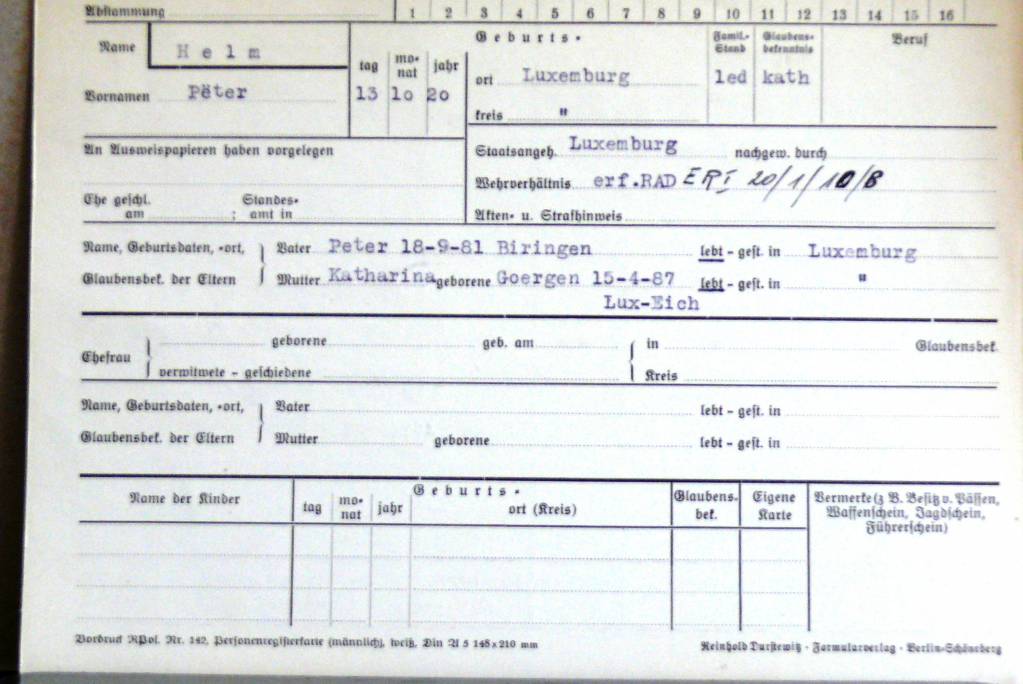 Abstammung 1 2 3 4 5 6 7 8 9 10 11 12 13 14 15 16
Name Helm
Vornamen Pëter
tag mo-nat jahr
13 10 20
Geburts-
ort Luxemburg
kreis "
Famil.-Stand
led
Glaubens-bekenntnis
kath
Beruf
An Ausweispapieren haben vorgelegen
Ehe geschl. Standes-
am ; amt in
Staatsangeh. Luxemburg nachgew. durch
Wehrverhältnis erf.RAD ERI 20/1/10/8
Akten- u. Strafhinweis
Name, Geburtsdaten, -ort, Vater Peter 18-9-81 Biringen lebt - gest. in Luxemburg
Glaubensbek. der Eltern Mutter Katharina geborene Goergen 15-4-87 lebt - gest. in "
Lux-Eich
Ehefrau geborene geb. am in Glaubensbek.
verwitwete - geschiedene Kreis
Name, Geburtsdaten, -ort, Vater lebt - gest. in
Glaubensbek. der Eltern Mutter geborene lebt - gest. in
Name der Kinder
Geburts-
tag mo-nat jahr ort (Kreis)
Glaubens-
bek.
Eigene
Karte
Vermerke (z. B. Besitz v. Pässen,
Waffenschein, Jagdschein,
Führerschein)
Vordruck RPol. Nr. 142, Personenregisterkarte (männlich), weiß, Din A 5 148x210 mm
Reinhold Durstewitz · Formularverlag · Berlin-Schöneberg